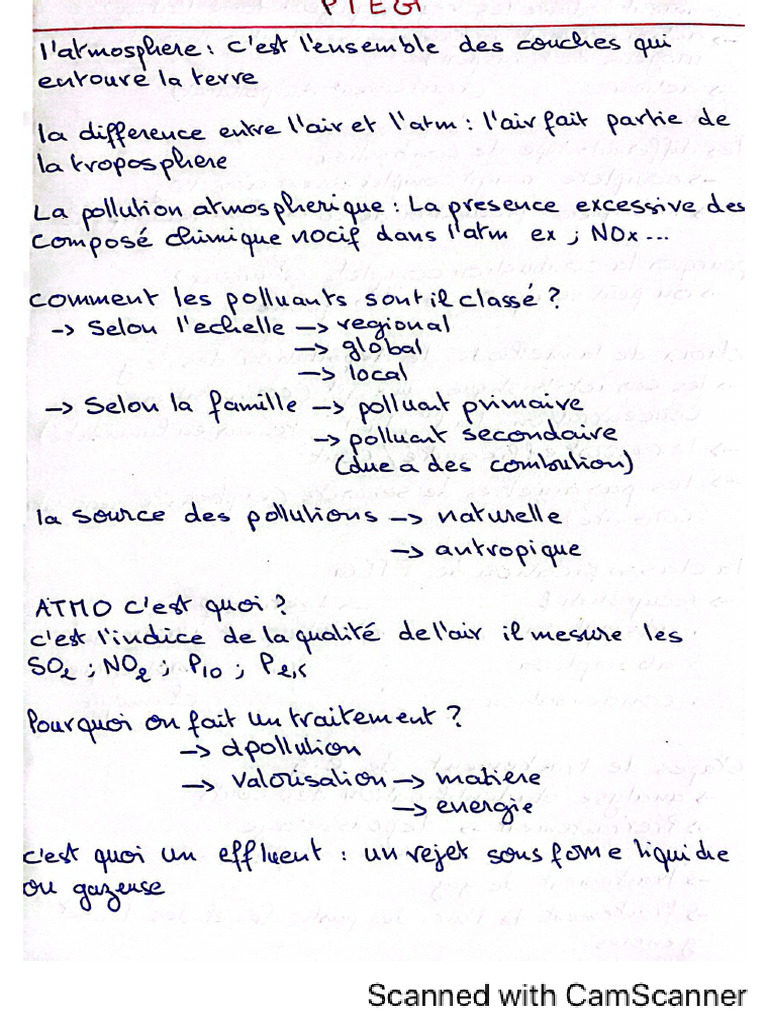 PTEG
l'atmosphere : c'est l'ensemble des couches qui
entoure la terre
la difference entre l'air et l'atm : l'air fait partie de
la troposphere
La pollution atmospherique : La presence excessive des
composé chimique nocif dans l'atm ex ; NOx ...
comment les polluants sont il classé ?
-> Selon l'echelle -> regional
-> global
-> local
-> Selon la famille -> polluant primaire
-> polluant secondaire
(due a des combution)
la source des pollutions -> naturelle
-> antropique
ATMO c'est quoi ?
c'est l'indice de la qualité de l'air il mesure les
SO2 ; NO2 ; P10 ; P2,5
Pourquoi on fait un traitement ?
-> dpollution
-> valorisation -> matiere
-> energie
c'est quoi un effluent : un rejet sous forme liquide
ou gazeuse
Scanned with CamScanner